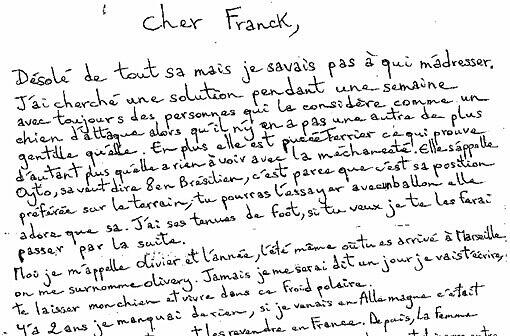 Cher Franck,
Désolé de tout sa mais je savais pas à qui m'adresser.
J'ai cherché une solution pendant une semaine
avec toujours des personnes qui la considère comme un
chien d'attaque alors qu'il n'y en a pas une autre de plus
gentille qu'elle. En plus elle est pucée Terrier ce qui prouve
d'autant plus qu'elle a rien à voir avec la méchanceté. Elle s'appelle
Oyto, sa veut dire 8 en Brésilien, c'est parce que c'est sa position
préférée sur le terrain, tu pourras l'essayer avec un ballon elle
adore que sa. J'ai ses tenues de foot, si tu veux je te les ferai
passer par la suite.
Moi je m'appelle olivier et l'année, l'été même où tu es arrivé à Marseille
on me surnomme olivery. Jamais je me serai dit un jour je vais t'écrire,
te laisser mon chien et vivre dans ce Froid polaire.
Y'a 2 ans je manquai de rien, si je venais en Allemagne c'était
et les revendre en France. Depuis, la Femme